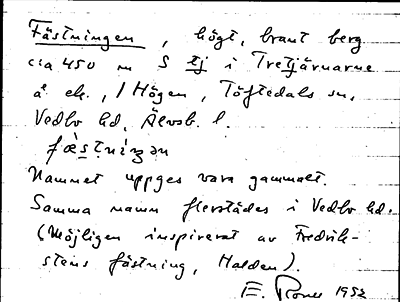 Fästningen, högt, brant berg
c:a 450 m S tj i Tretjärnarne
å ek., / Högen, Töftedals sn,
Vedbo hd, Älvsb. l.
Namnet uppges vara gammalt.
Samma namn flerstädes i Vedbo hd.
(Möjligen inspirerat av Fredrik-
stens fästning, Halden).
E. 1952